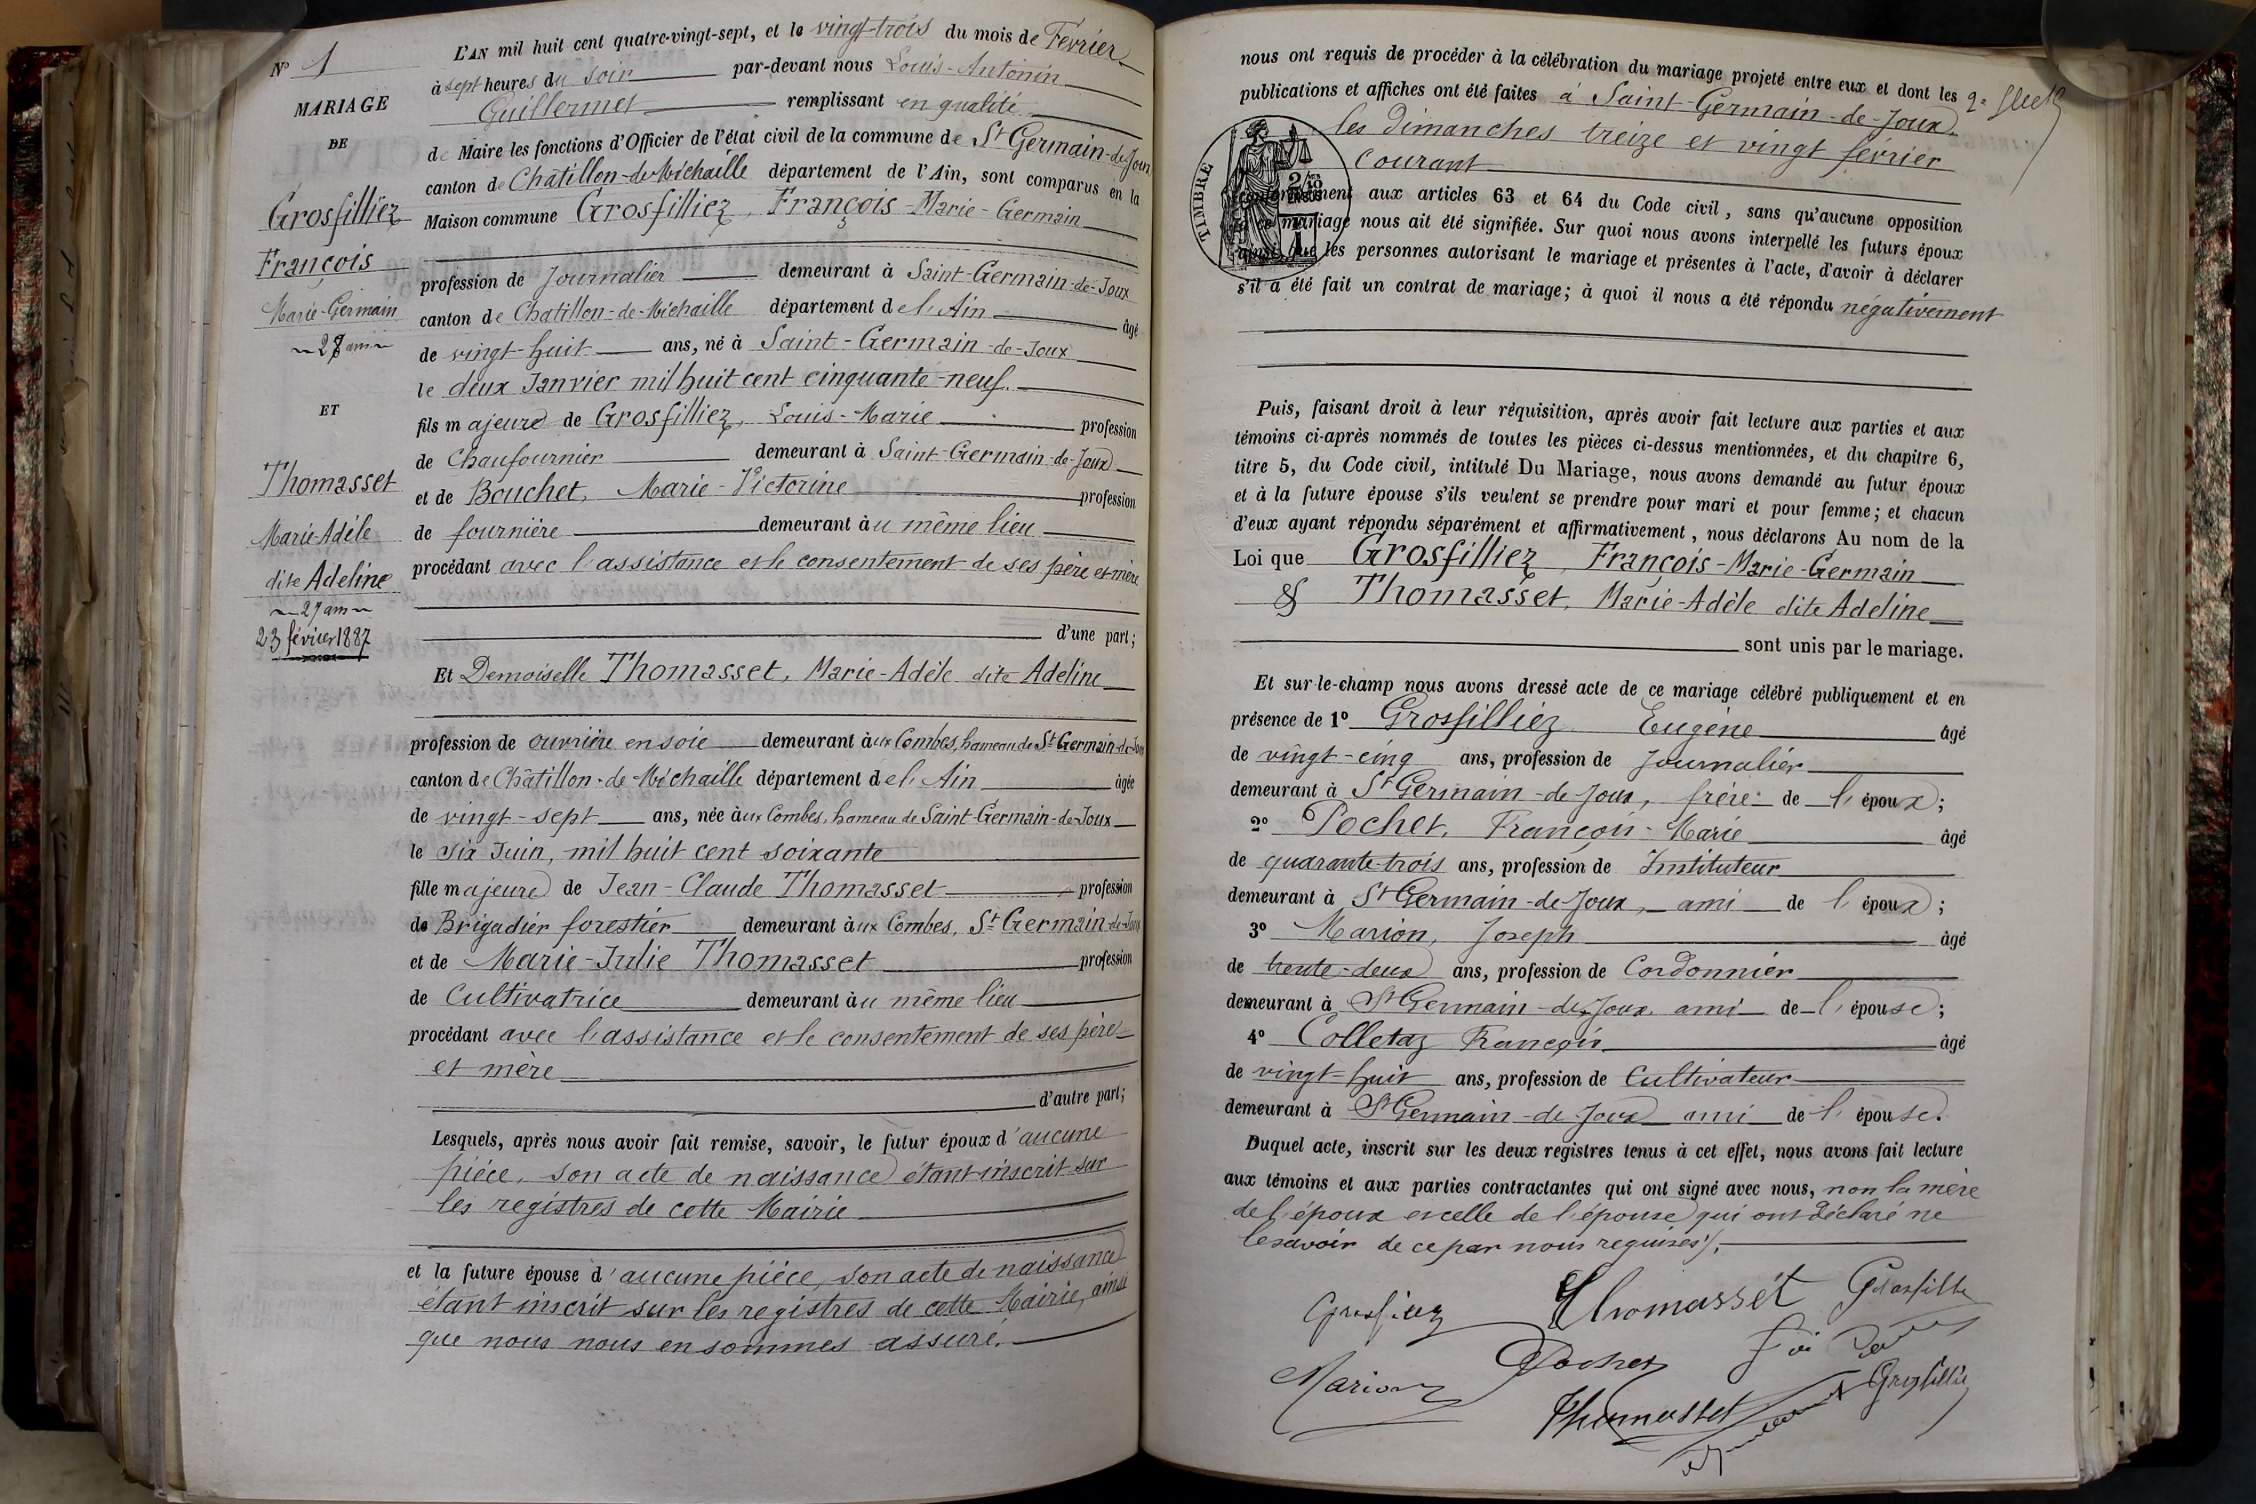 N° 1
MARIAGE
DE
Grosfilliez
François
Marie-Germain
28 ans
ET
Thomasset
Marie-Adèle
dite Adeline
27 ans
23 février 1887
L'AN mil huit cent quatre-vingt-sept, et le vingt-trois du mois de Février
à sept heures du soir par-devant nous Louis-Antonin
Guillermet remplissant en qualité
de Maire les fonctions d'Officier de l'état civil de la commune de St Germain-de-Joux
canton de Châtillon-de-Michaille département de l'Ain, sont comparus en la
Maison commune Grosfilliez, François-Marie-Germain
profession de Journalier demeurant à Saint-Germain-de-Joux
canton de Chatillon-de-Michaille département de l'Ain âgé
de vingt-huit ans, né à Saint-Germain-de-Joux
le deux Janvier mil huit cent cinquante-neuf.
fils majeur de Grosfilliez, Louis-Marie profession
de Chaufournier demeurant à Saint-Germain-de-Joux
et de Bouchet, Marie-Victorine profession
de fournière demeurant au même lieu
procédant avec l'assistance et le consentement de ses père et mère
d'une part;
Et Demoiselle Thomasset, Marie-Adèle dite Adeline
profession de ouvrière en soie demeurant aux Combes, hameau de St Germain-de-Joux
canton de Châtillon-de-Michaille département de l'Ain âgée
de vingt-sept ans, née aux Combes, hameau de Saint-Germain-de-Joux
le six Juin, mil huit cent soixante
fille majeure de Jean-Claude Thomasset profession
de Brigadier forestier demeurant aux Combes, St Germain-de-Joux
et de Marie-Julie Thomasset profession
de Cultivatrice demeurant au même lieu
procédant avec l'assistance et le consentement de ses père
et mère
d'autre part;
Lesquels, après nous avoir fait remise, savoir, le futur époux d'aucune
pièce, son acte de naissance étant inscrit sur
les registres de cette Mairie
et la future épouse d'aucune pièce, son acte de naissance
étant inscrit sur les registres de cette Mairie, ainsi
que nous nous en sommes assuré.
nous ont requis de procéder à la célébration du mariage projeté entre eux et dont les
publications et affiches ont été faites à Saint-Germain-de-Joux
les Dimanches treize et vingt février
courant
TIMBRE
conformément aux articles 63 et 64 du Code civil, sans qu'aucune opposition
à ce mariage nous ait été signifiée. Sur quoi nous avons interpellé les futurs époux
ainsi que les personnes autorisant le mariage et présentes à l'acte, d'avoir à déclarer
s'il a été fait un contrat de mariage; à quoi il nous a été répondu négativement
Puis, faisant droit à leur réquisition, après avoir fait lecture aux parties et aux
témoins ci-après nommés de toutes les pièces ci-dessus mentionnées, et du chapitre 6,
titre 5, du Code civil, intitulé Du Mariage, nous avons demandé au futur époux
et à la future épouse s'ils veulent se prendre pour mari et pour femme; et chacun
d'eux ayant répondu séparément et affirmativement, nous déclarons Au nom de la
Loi que Grosfilliez, François-Marie-Germain
& Thomasset, Marie-Adèle dite Adeline
sont unis par le mariage.
Et sur-le-champ nous avons dressé acte de ce mariage célébré publiquement et en
présence de 1° Grosfilliez Eugène âgé
de vingt-cinq ans, profession de Journalier
demeurant à St Germain-de-Joux, frère de l'époux;
2° Pochet, François-Marie âgé
de quarante-trois ans, profession de Instituteur
demeurant à St Germain-de-Joux, ami de l'époux;
3° Marion, Joseph âgé
de trente-deux ans, profession de Cordonnier
demeurant à St Germain-de-Joux ami de l'épouse;
4° Colletaz François âgé
de vingt-huit ans, profession de Cultivateur
demeurant à St Germain-de-Joux ami de l'épouse.
Duquel acte, inscrit sur les deux registres tenus à cet effet, nous avons fait lecture
aux témoins et aux parties contractantes qui ont signé avec nous, non la mère
de l'époux et celle de l'épouse qui ont déclaré ne
le savoir de ce par nous requises.
Thomasset
Pochet
Marion
Thomasset